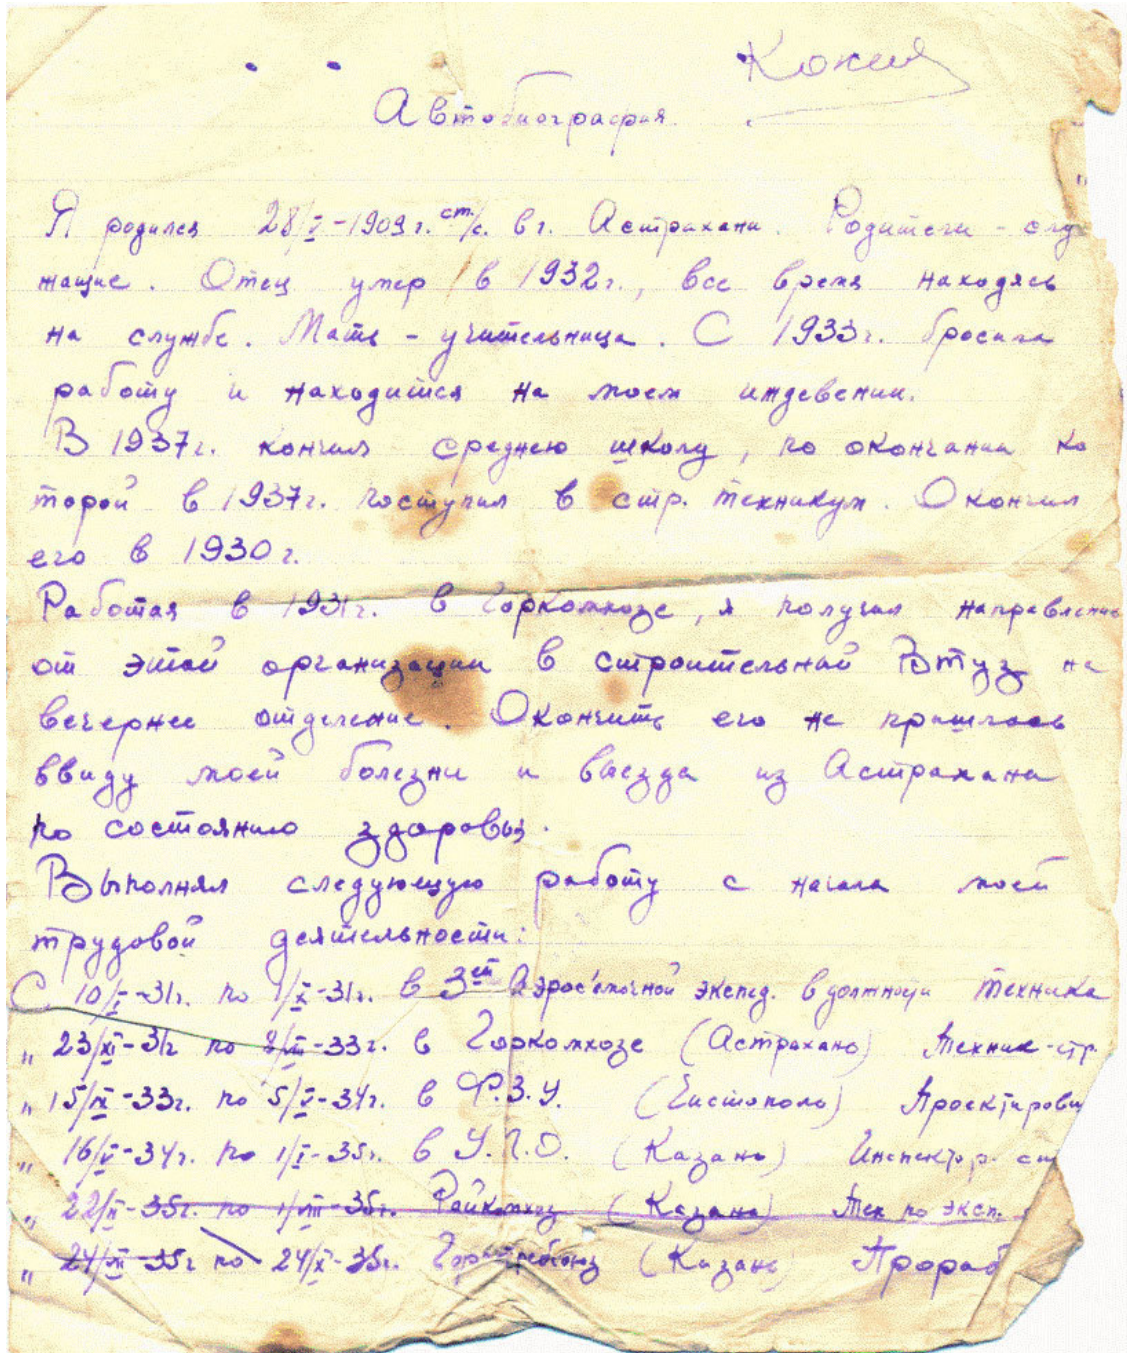 Копия
Автобиография
Я родился 28/V-1909 г. ст/с. в г. Астрахани. Родители - слу
жащие. Отец умер в 1932 г., все время находясь
на службе. Мать - учительница. С 1933 г. бросила
работу и находится на моем иждевении.
В 1937 г. кончил среднею школу, по окончании ко
торой в 1937 г. поступил в стр. техникум. Окончил
его в 1930 г.
Работая в 1931 г. в Горкомхозе, я получил направление
от этой организации в строительный Втуз на
вечернее отделение. Окончить его не пришлось
ввиду моей болезни и выезда из Астрахани
по состоянию здоровья.
Выполнял следующую работу с начала моей
трудовой деятельности:
С 10/I-31г. по 1/X-31г. в 3ей Аэрос'емочной экспед. в должности техника
„ 23/XI-31г по 8/III-33г. в Горкомхозе (Астрахань) Техник-стр.
„ 15/IX-33г. по 5/V-34г. в Ф.З.У. (Чистополь) Проектиров
„ 16/V-34г. по 1/I-35г. в У.П.О. (Казань) Инспектор
„ 22/II-35г. по 1/VII-35г. Райкомхоз (Казань) Тех по эксп.
„ 24/VII-35г по 24/X-35г. (Казань Прораб